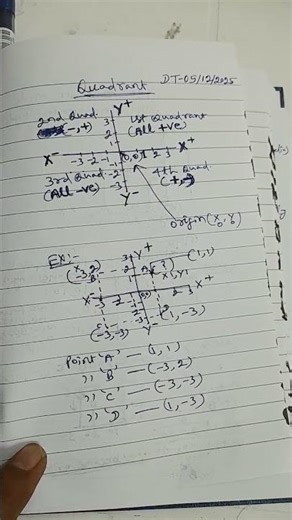 Quadrant DT-05/12/2025
2nd Quad. Y+ 1st Quadrant
(-,+) 3 (All +ve)
2
1
X- -3 -2 -1 0,0 1 2 3 X+
3rd Quad -1 4th Quad
(All -ve) -2 (+,-)
-3
Y-
origin (X,Y)
0 0
EX:- Y+
(-3,2) 3 (1,1)
B 2 A
X1,Y1
X- 3 2 2 3 X+
-1
-2
C -3 (1,-3)
(-3,-3) Y-
Point 'A' — (1, 1)
,, 'B' — (-3, 2)
,, 'C' — (-3, -3)
,, 'D' — (1, -3)